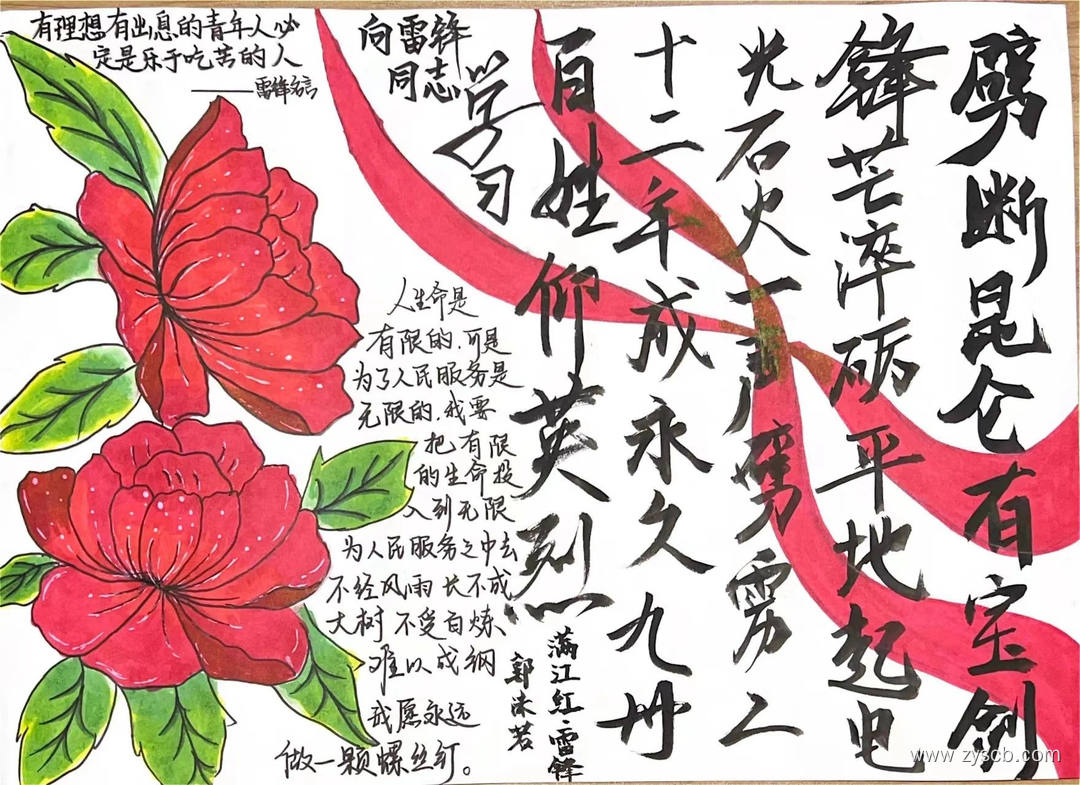 有理想有出息的青年人必
定是乐于吃苦的人
——雷锋名言
向雷锋
同志
学习
劈断昆仑有宝剑
锋芒淬砺平地起电
光石火一声劈雳二
十二年成永久九州
百姓仰英烈
满江红·雷锋
郭沫若
人生命是
有限的.可是
为了人民服务是
无限的.我要
把有限
的生命投
入到无限
为人民服务之中去
不经风雨 长不成
大树 不受百炼、
难以成纲
我愿永远
做一颗螺丝钉。
www.zyscb.com